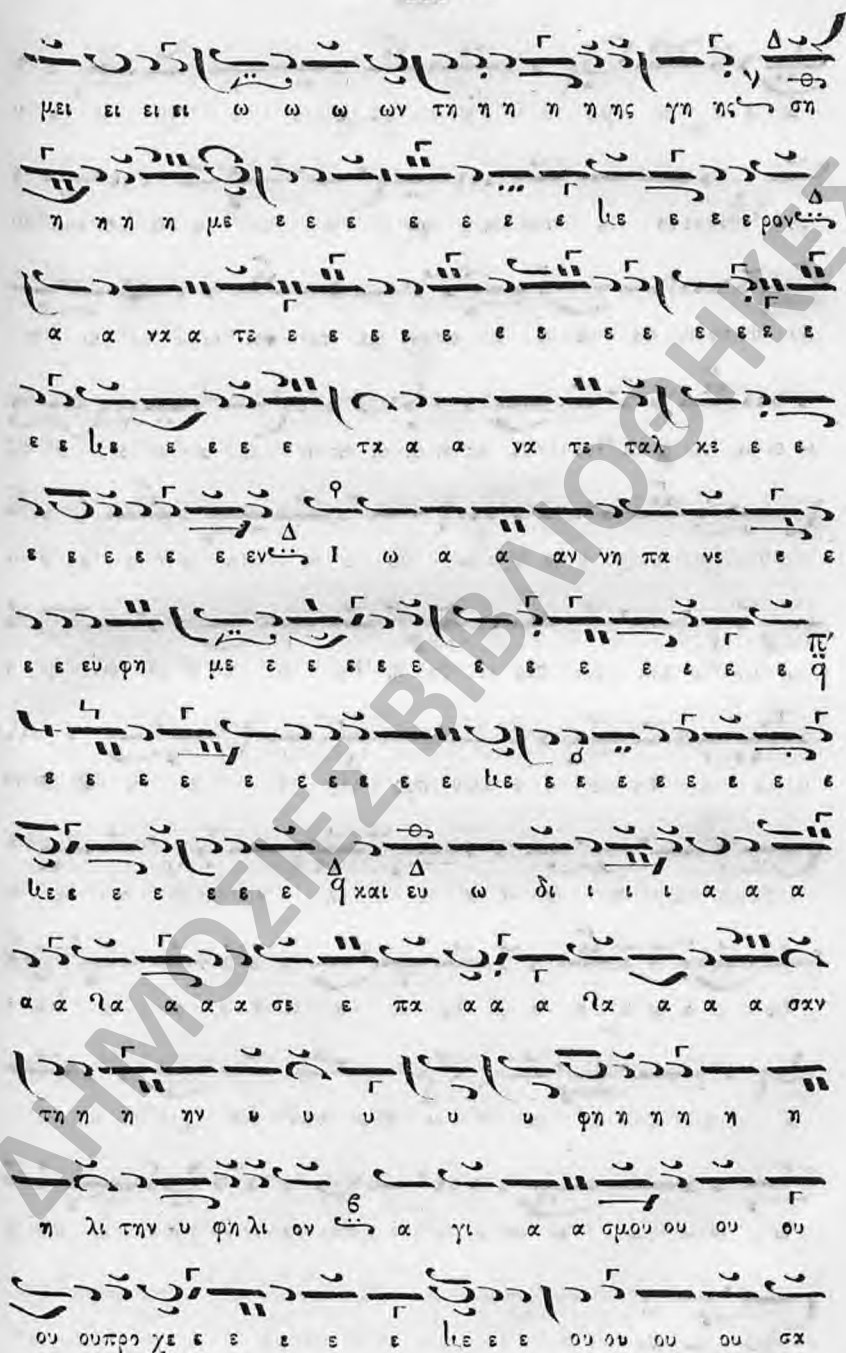 μει ει ει ει ω ω ω ων τη η η η η ης γη ης ση
η η η η με ε ε ε ε ε ε ε χε ε ε ε ρον
α α να α τε ε ε ε ε ε ε ε ε ε ε ε ε ε
ε ε χε ε ε ε ε τα α α να τε ταλ κε ε ε
ε ε ε ε ε ε εν Ι ω α α αν νη πα νε ε ε
ε ε ευ φη με ε ε ε ε ε ε ε ε ε ε ε ε
ε ε ε ε ε ε ε ε ε ε χε ε ε ε ε ε ε ε
χε ε ε ε ε ε ε ε και ευ ω δι ι ι ι α α α
α α χα α α α σε ε πα α α α χα α α α σαν
τη η η ην υ υ υ υ υ φη η η η η η
η λι την υ φη λι ον α γι α α σμου ου ου ου
ου ου προ χε ε ε ε ε ε χε ε ε ου ου ου ου σα
ΔΗΜΟΣΙΕΣ ΒΙΒΛΙΟΘΗΚΕΣ